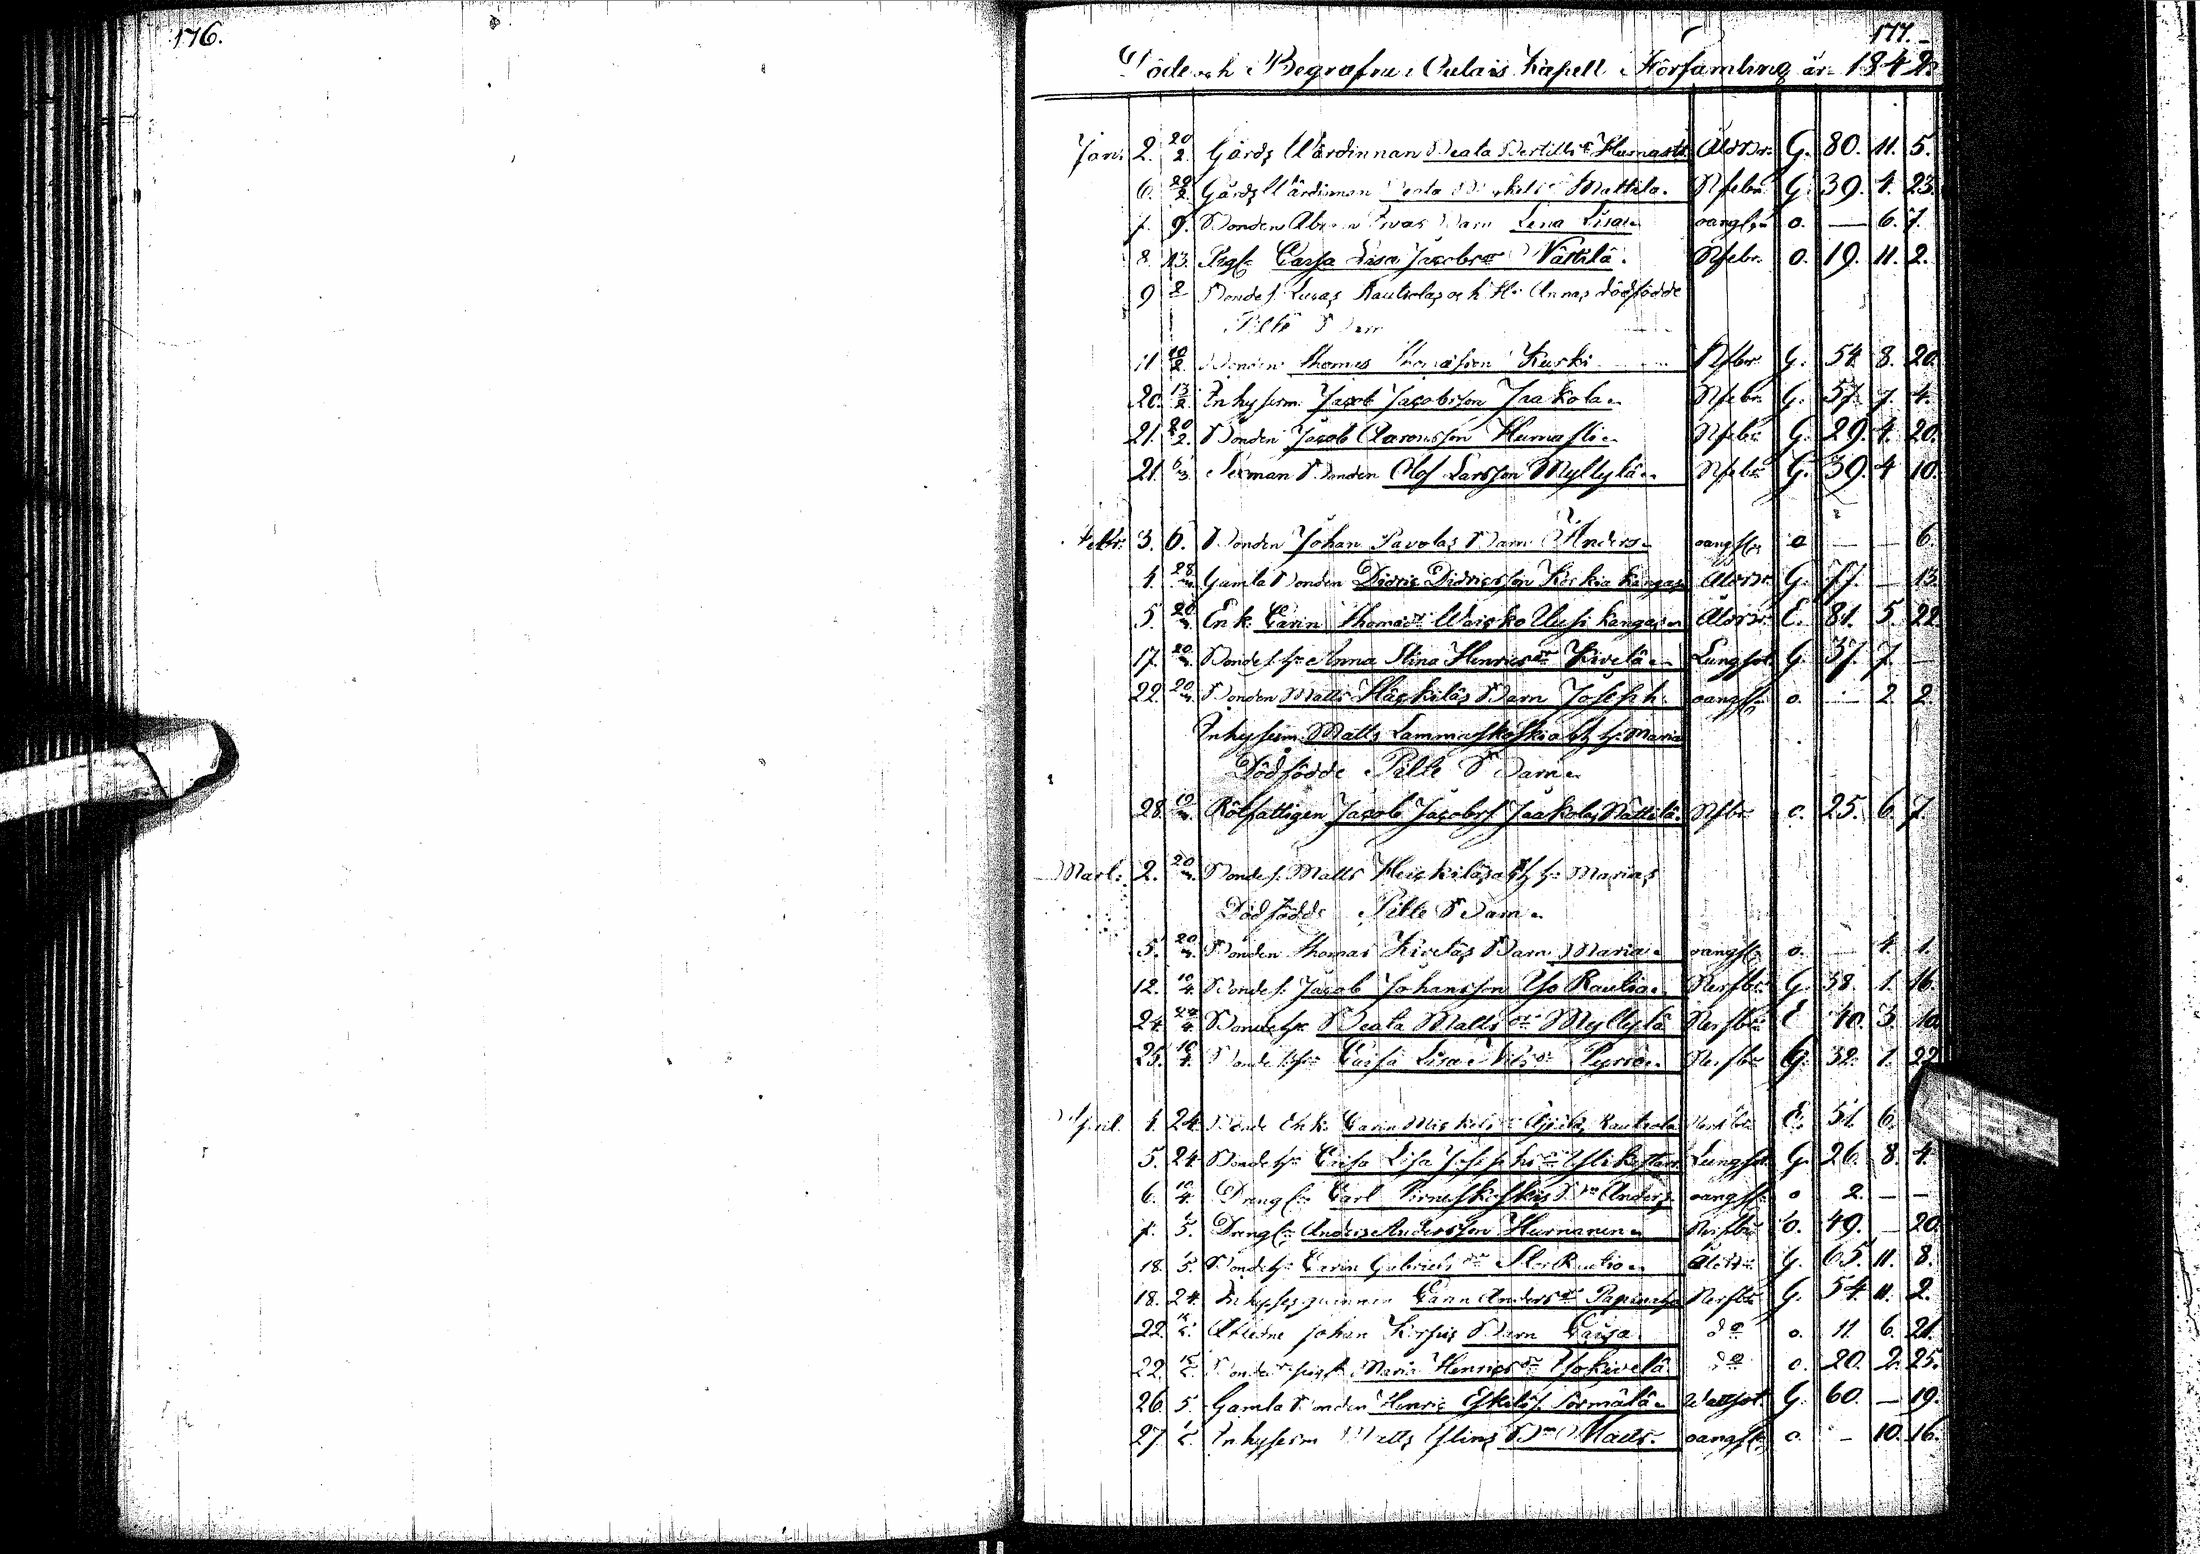 176.
177.
Döde och Begrafne i Oulais Kapell Församling år 1842.
Jan: 2. 20/2. Gårds Wärdinnan Beata Bertils dr Humasti Åldr: G. 80. 11. 5.
6. 20/2 Gårds Wärdinnan Beata Mickels dr Mattila. Nfeber G. 39. 4. 23.
7. 9. Bonden Barn Lena Lisa oangifn o. — 6. 7.
8. 13. Pig: Cajsa Lisa Jacobs dr Nättilä. Nfeber. o. 19. 11. 2.
9 Bondes. Lucas Rautiolas och H: Annas dödfödde
Pilte Barn
11 10/2 Bonden Thomas Thomasson Kurki Nfbr. G. 54 8. 20.
20. 13/2. Inhyserm: Jacob Jacobsson Jaakola Nfebr. G. 57. 7. 4.
21. 20/2. Bonden Jacob Aaronsson Humasti Nfebr. G. 29. 4. 20.
21. 6/3. Bonden Olof Larsson Myllylä Nfebr. G. 39. 4 10.
Febr: 3. 6. Bonden Johan Pavolas Barn Anders oangifn o — — 6.
4. 28. Gamla Bonden Didric Didricsson Keskikangas Åldr. G. 77. — 13.
5. 20. Enk: Carin Thomas dr Uusikangas Åldr. E. 81. 5. 22
17. 20. Bondes. H: Anna Stina Henrics dr Kivelä Lungsot. G. 37. 7. —
22. 20. Bonden Matts Häckiläs Barn Joseph oangifn o. — 2. 2.
Inhyserm. Matts Lammaskoski och H: Maria
Dödfödde Pilte Barn
28. 10. Rötfattigen Jacob Jacobs s. Jaakola Nättilä Nfbr. o. 25. 6. 7.
Mart: 2. 20. Bondes. Matts Heickiläs och H: Marias
Dödfödde Pilte Barn
5. 20. Bonden Thomas Kiveläs Barn Maria oangifn o. — 4. 1.
12. 10/4. Bondes. Jacob Johansson Yso Rautio Nerfbr. G. 38. 1. 16.
24. 24/4. Bonde Beata Matts dr Myllylä Nerfbr. E 40. 3. 10
25. 10/4. Bondes H: Cajsa Lisa Nils dr Nerfbr. G. 32. 1. 22
April. 4. 24. Bonde Enk: Carin Mickels dr Rautiola Nerfbr. E. 51 6.
5. 24 Bonde H: Cajsa Lisa Josephs dr Lungsot. G. 26. 8. 4.
6. 10/4. Dreng: Carl Pirneskoskis Anders oangifn o 2. — —
7. 1/5. Dreng: Anders Andersson Hurnanen Nerfbr. o. 49. — 20.
18. 1/5. Bonde H: Carin Gabriels dr Rautio Åldr. G. 65. 11. 8.
18. 24. Inhyses qvinnan Carin Anders dr Nerfbr. G. 54. 11. 2.
22. Johan Barn Cajsa do o. 11. 6. 21.
22. Maria Henrics dr Yso Kivelä do o. 20. 2. 25.
26. 5. Gamla Bonden Henric Eskels s. Sormälä Wattsot. G. 60. — 19.
27. Inhyserm Matts Matts oangifn o. — 10. 16.